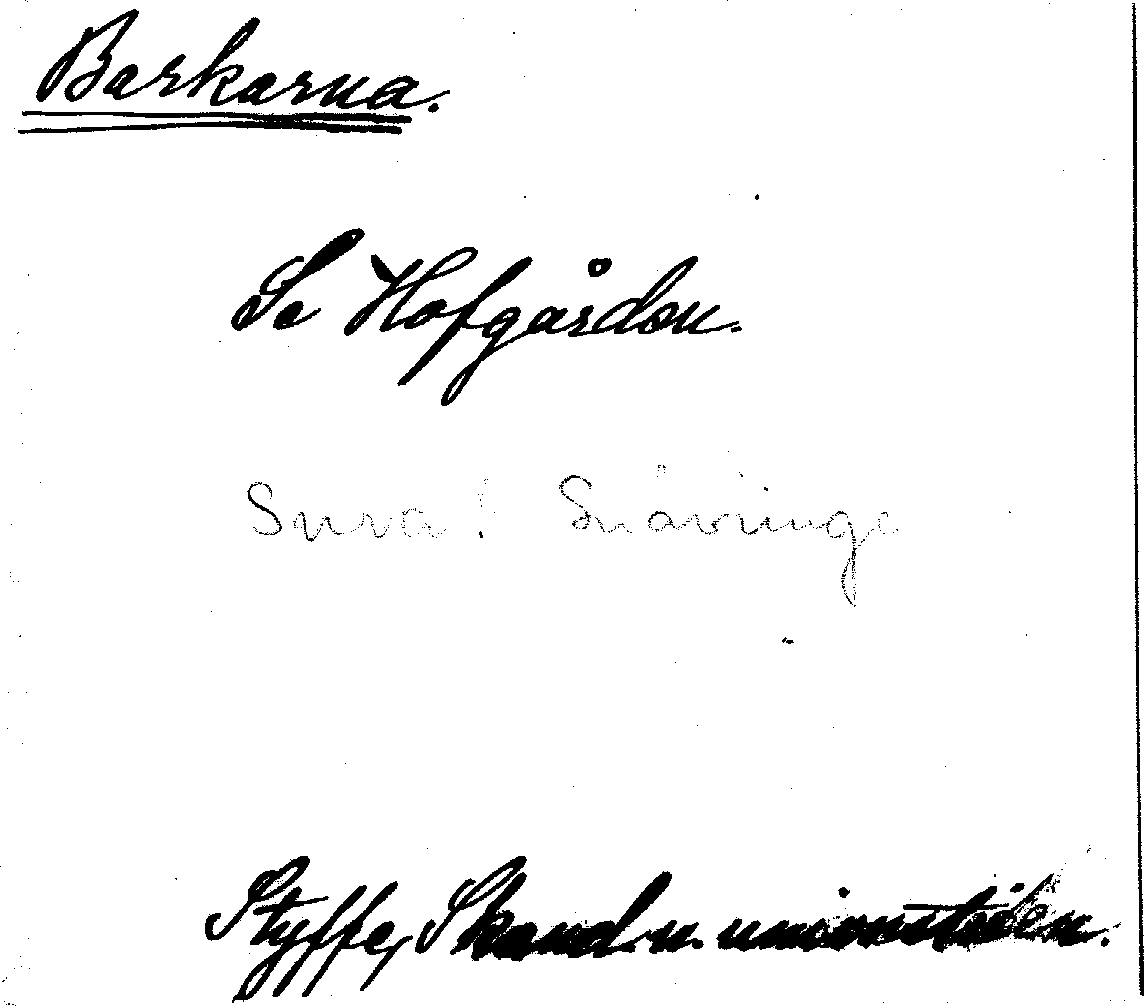 Barkarna.
Se Hofgården.
Sura! Snävringe
Styffe, Skand. u. unionstiden.